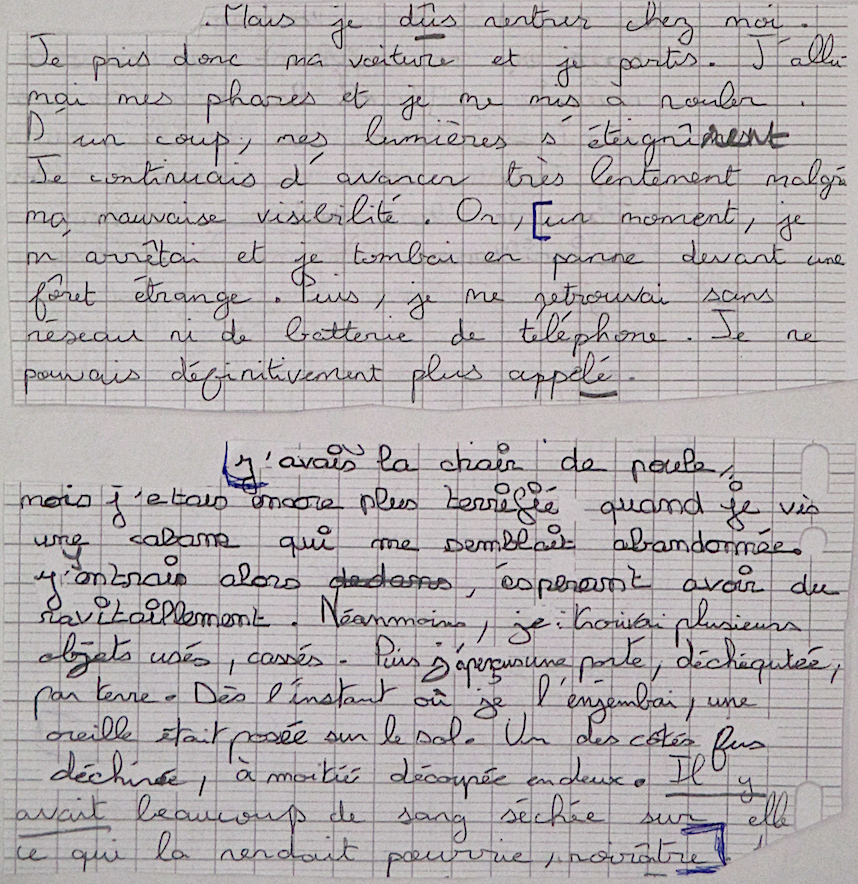 . Mais je dûs rentrer chez moi.
Je pris donc ma voiture et je partis. J'allu-
mai mes phares et je me mis à rouler.
D'un coup, mes lumières s'éteignirent
Je continuais d'avancer très lentement malgré
ma mauvaise visibilité. Or, [un moment, je
m'arrêtai et je tombai en panne devant une
fôret étrange. Puis, je me retrouvai sans
réseau ni de batterie de téléphone. Je ne
pouvais définitivement plus appelé.
j'avais la chair de poule,
mais j'etais encore plus terrifié quand je vis
une cabane qui me semblait abandonnée.
j'entrais alors dedans, esperant avoir du
ravitaillement. Néanmoins, je trouvai plusieurs
objets usés, cassés. Puis j'aperçus une porte, déchéqutée,
par terre. Dès l'instant où je l'enjembai, une
oreille était posée sur le sol. Un des côtés fus
déchirée, à moitié découpée en deux. Il y
avait beaucoup de sang séchée sur elle
ce qui la rendait pourrie, noirâtre]